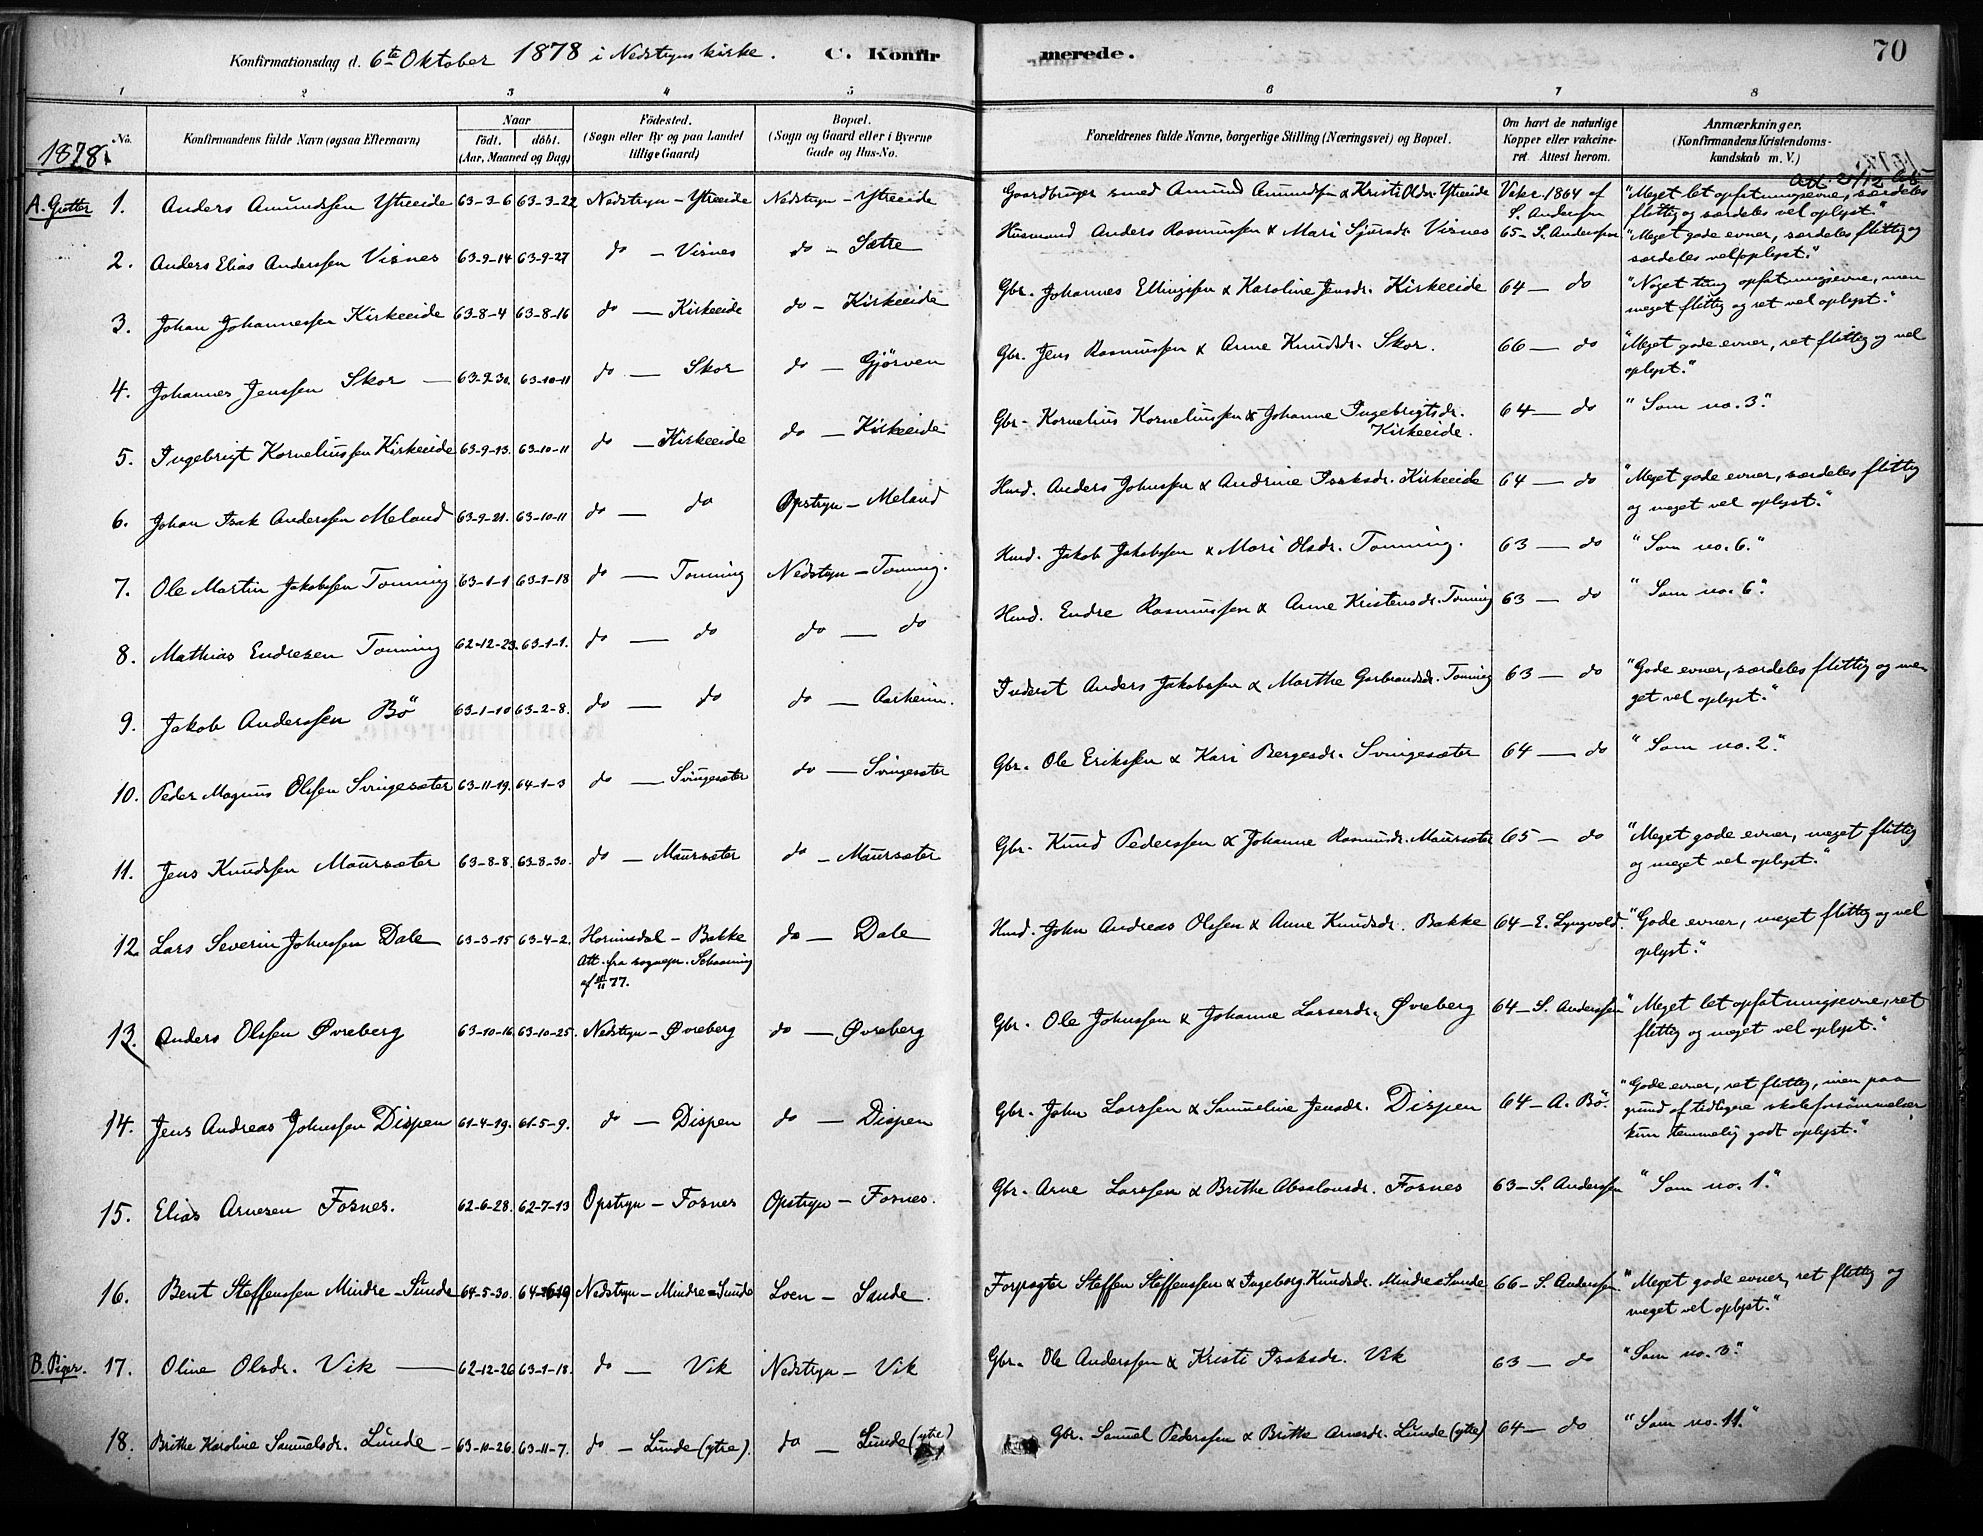 Konfirmationsdag d. 6te Oktober 1878 i Nedstryns kirke. C. Konfirmerede. 70
1 2 3 4 5 6 7 8
No. Konfirmandens fulde Navn (ogsaa Efternavn) Naar födt. döbt. (Aar, Maaned og Dag) Födested. (Sogn eller By og paa Landet tillige Gaard) Bopæl. (Sogn og Gaard eller i Byerne Gade og Hus-No. Forældrenes fulde Navne, borgerlige Stilling (Næringsvei) og Bopæl. Om havt de naturlige Kopper eller vakcineret Attest herom. Anmærkninger. (Konfirmandens Kristendomskundskab m. V.)
1878.
A. Gutter 1. Anders Amundssen Ytreeide 63-3-6 63-3-22 Nedstryn - Ytreeide Nedstryn - Ytreeide Gaardbruger smed Amund Amundssen & Kristi Olsdr. Ytreeide Vakc. 1864 af S. Anderssen "Meget let opfatningsevne, særdeles flittig og særdeles vel oplyst."
2. Anders Elias Anderssen Visnes 63-9-14 63-9-27 do - Visnes do - Sætre Husmand Anders Rasmussen & Mari Sjursdr. Visnes 65 - S. Anderssen "Meget gode evner, særdeles flittig og særdeles vel oplyst."
3. Johan Johannessen Kirkeeide 63-8-4 63-8-16 do - Kirkeeide do - Kirkeeide Gbr. Johannes Ellingssen & Karoline Jensdr. Kirkeeide 64 - do "Noget tung opfatningsevne, men meget flittig og ret vel oplyst."
4. Johannes Jenssen Skor - 63-9-30. 63-10-11 do - Skor do - Gjörven Gbr. Jens Rasmussen & Anne Knudsdr. Skor. 66 - do "Meget gode evner, ret flittig og vel oplyst."
5. Ingebrigt Korneliussen Kirkeeide 63-9-13. 63-10-11 do - Kirkeeide do - Kirkeeide Gbr. Kornelius Korneliussen & Johanne Ingebrigtsdr. Kirkeeide. 64 - do "Som no. 3."
6. Johan Isak Anderssen Meland 63-9-21. 63-10-11 do - do Opstryn - Meland Hmd. Anders Johnssen & Andrine Isaksdr. Kirkeeide 64 - do "Meget gode evner, særdeles flittig og meget vel oplyst."
7. Ole Martin Jakobssen Tonning 63-1-1 63-1-18 do - Tonning Nedstryn - Tonning. Hmd. Jakob Jakobssen & Mari Olsdr. Tonning. 63 - do "Som no. 6."
8. Mathias Endresen Tonning 62-12-23. 63-1-1. do - do do - do Hmd. Endre Rasmussen & Anne Kristensdr. Tonning 63 - do "Som no. 6."
9. Jakob Anderssen Bö 63-1-10 63-2-8. do - do do - Aarheim. Inderst Anders Jakobssen & Marthe Garbrandsdr. Tonning 63 - do "Gode evner, særdeles flittig og meget vel oplyst."
10. Peder Magnus Olssen Svingesæter 63-11-19. 64-1-3 do - Svingesæter do - Svingesæter Gbr. Ole Erikssen & Kari Bergesdr. Svingesæter 64 - do "Som no. 2."
11. Jens Knudssen Maursæter 63-8-8. 63-8-30. do - Maursæter do - Maursæter Gbr. Knud Pederssen & Johanne Rasmusdr. Maursæter 65 - do "Meget gode evner, meget flittig og meget vel oplyst."
12. Lars Severin Johnssen Dale 63-3-15 63-4-2. Hornindal - Bakke Att. fra sognepr. Schaaning af 77. do - Dale Hmd. John Andreas Olssen & Anne Knudsdr. Bakke 64 - E. Lyngvold. "Gode evner, meget flittig og vel oplyst."
13. Anders Olssen Øvreberg 63-10-16. 63-10-25. Nedstryn - Øvreberg do - Øvreberg Gbr. Ole Johnssen & Johanne Larsesdr. Øvreberg 64 - S. Anderssen "Meget let opfatningsevne, ret flittig og meget vel oplyst."
14. Jens Andreas Johnssen Dispen 61-4-19. 61-5-9. do - Dispen do - Dispen Gbr. John Larssen & Samueline Jensdr. Dispen 64 - A. Bö. "Gode evner, ret flittig, men paa grund af tidligere skoleforsömmelser kun temmelig godt oplyst."
15. Elias Arnesen Fosnes. 62-6-28. 62-7-13 Opstryn - Fosnes Opstryn - Fosnes. Gbr. Arne Larssen & Brithe Absalonsdr. Fosnes 63 - S. Anderssen "Som no. 1."
16. Bent Steffenssen Mindre-Sunde 64-5-30. Nedstryn - Mindre-Sunde Loen - Sande. Forpagter Steffen Steffenssen & Ingeborg Knudsdr. Mindre-Sunde 66 - S. Anderssen. "Meget gode evner, ret flittig og meget vel oplyst."
B. Piger. 17. Oline Olsdr. Vik - 62-12-26 63-1-18. do - Vik Nedstryn - Vik Gbr. Ole Anderssen & Kristi Isaksdr. Vik 63 - do "Som no. 3."
18. Brithe Karoline Samuelsdr. Lunde - 63-10-26. 63-11-7. do - Lunde (ytre). do - Lunde (ytre) Gbr. Samuel Pederssen & Brithe Arnesdr. Lunde (ytre) 64 - do "Som no. 11."